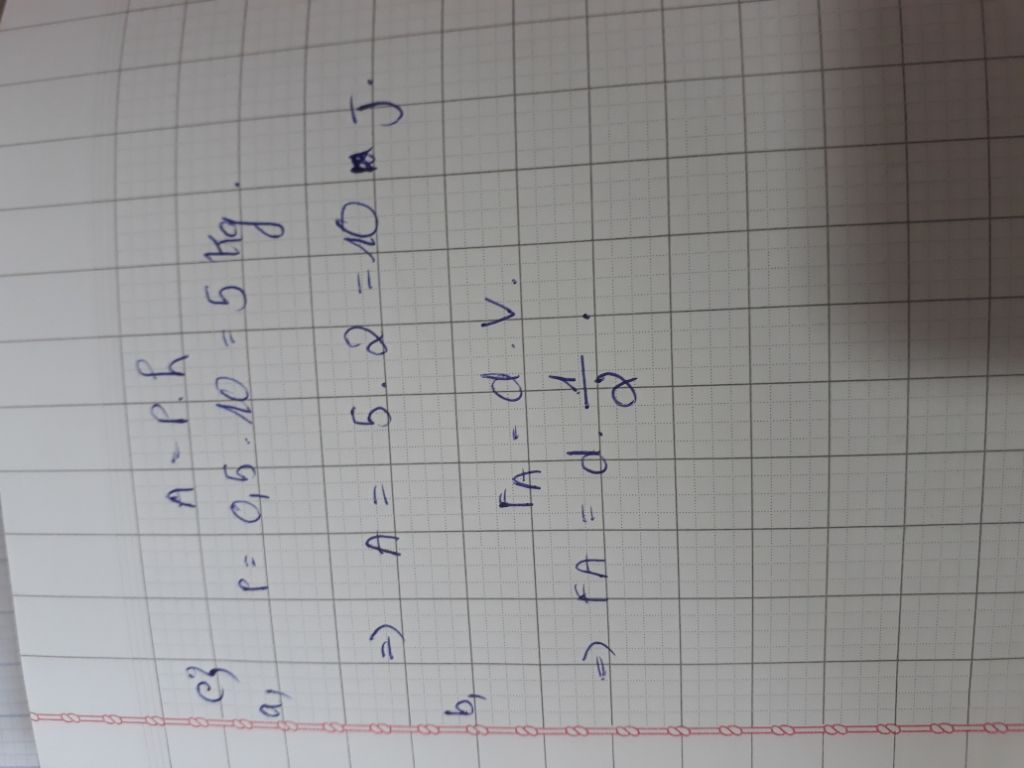 C3
A = P.h
a, P = 0,5 . 10 = 5 Kg.
=> A = 5 . 2 = 10 J.
b,
FA = d . V.
=> FA = d . 1/2 .